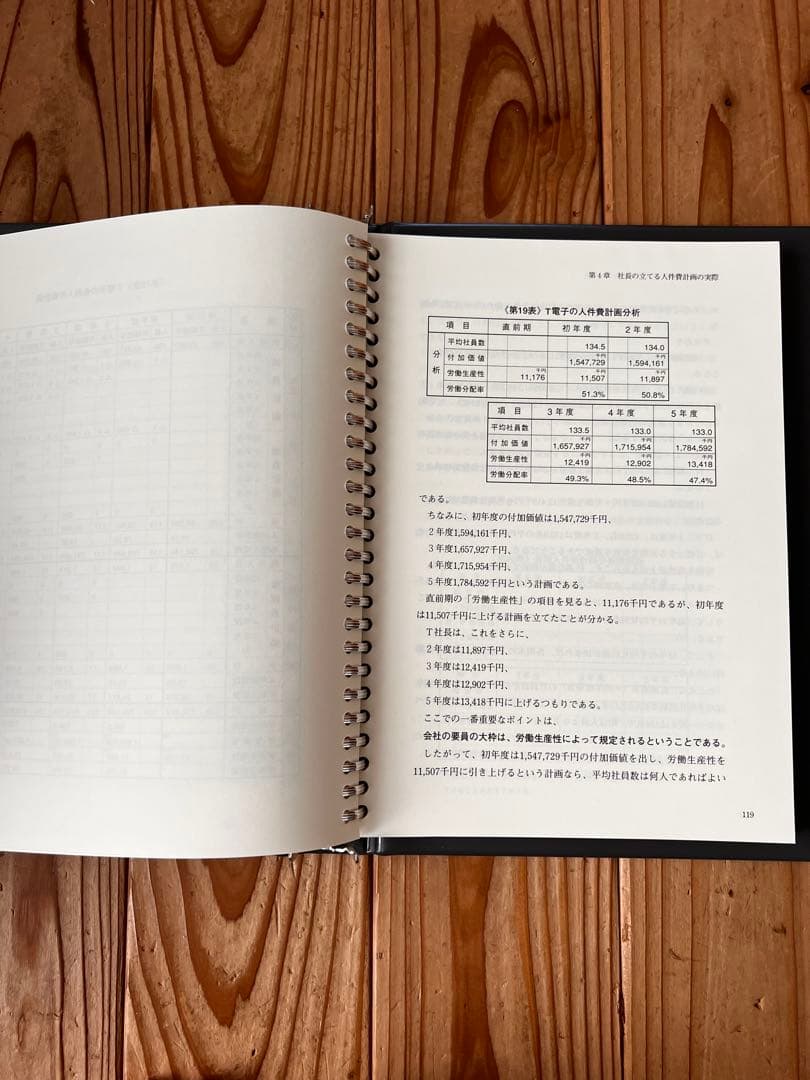 第4章 社長の立てる人件費計画の実際
〈第19表〉T電子の人件費計画分析
項目 直前期 初年度 2年度
分析
平均社員数 134.5 134.0
付加価値 千円 1,547,729 千円 1,594,161
労働生産性 千円 11,176 千円 11,507 千円 11,897
労働分配率 51.3% 50.8%
項目 3年度 4年度 5年度
平均社員数 133.5 133.0 133.0
付加価値 千円 1,657,927 千円 1,715,954 千円 1,784,592
労働生産性 千円 12,419 千円 12,902 千円 13,418
労働分配率 49.3% 48.5% 47.4%
である。
ちなみに、初年度の付加価値は1,547,729千円、
2年度1,594,161千円、
3年度1,657,927千円、
4年度1,715,954千円、
5年度1,784,592千円という計画である。
直前期の「労働生産性」の項目を見ると、11,176千円であるが、初年度
は11,507千円に上げる計画を立てたことが分かる。
T社長は、これをさらに、
2年度は11,897千円、
3年度は12,419千円、
4年度は12,902千円、
5年度は13,418千円に上げるつもりである。
ここでの一番重要なポイントは、
会社の要員の大枠は、労働生産性によって規定されるということである。
したがって、初年度は1,547,729千円の付加価値を出し、労働生産性を
11,507千円に引き上げるという計画なら、平均社員数は何人であればよい
119